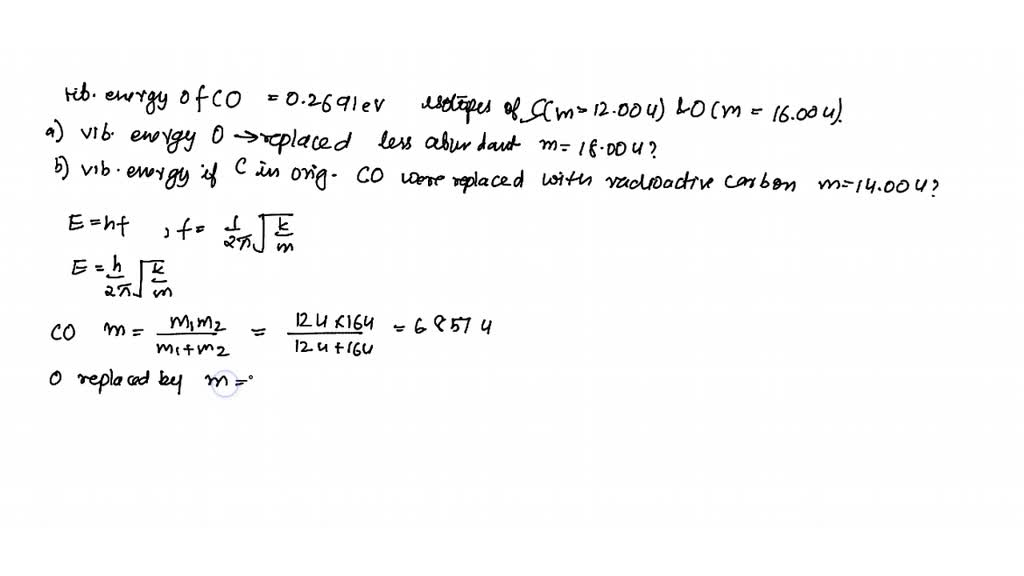 vib. energy of CO = 0.2691 ev isotopes of C(m=12.00u) & O(m=16.00u).
a) vib. energy O → replaced less abundant m=18.00u?
b) vib. energy if C in orig. CO were replaced with radioactive carbon m=14.00u?
E = hf , f = 1/2π √k/m
E = h/2π √k/m
CO m = m₁m₂/m₁+m₂ = 12u×16u/12u+16u = 6857u
O replaced by m =